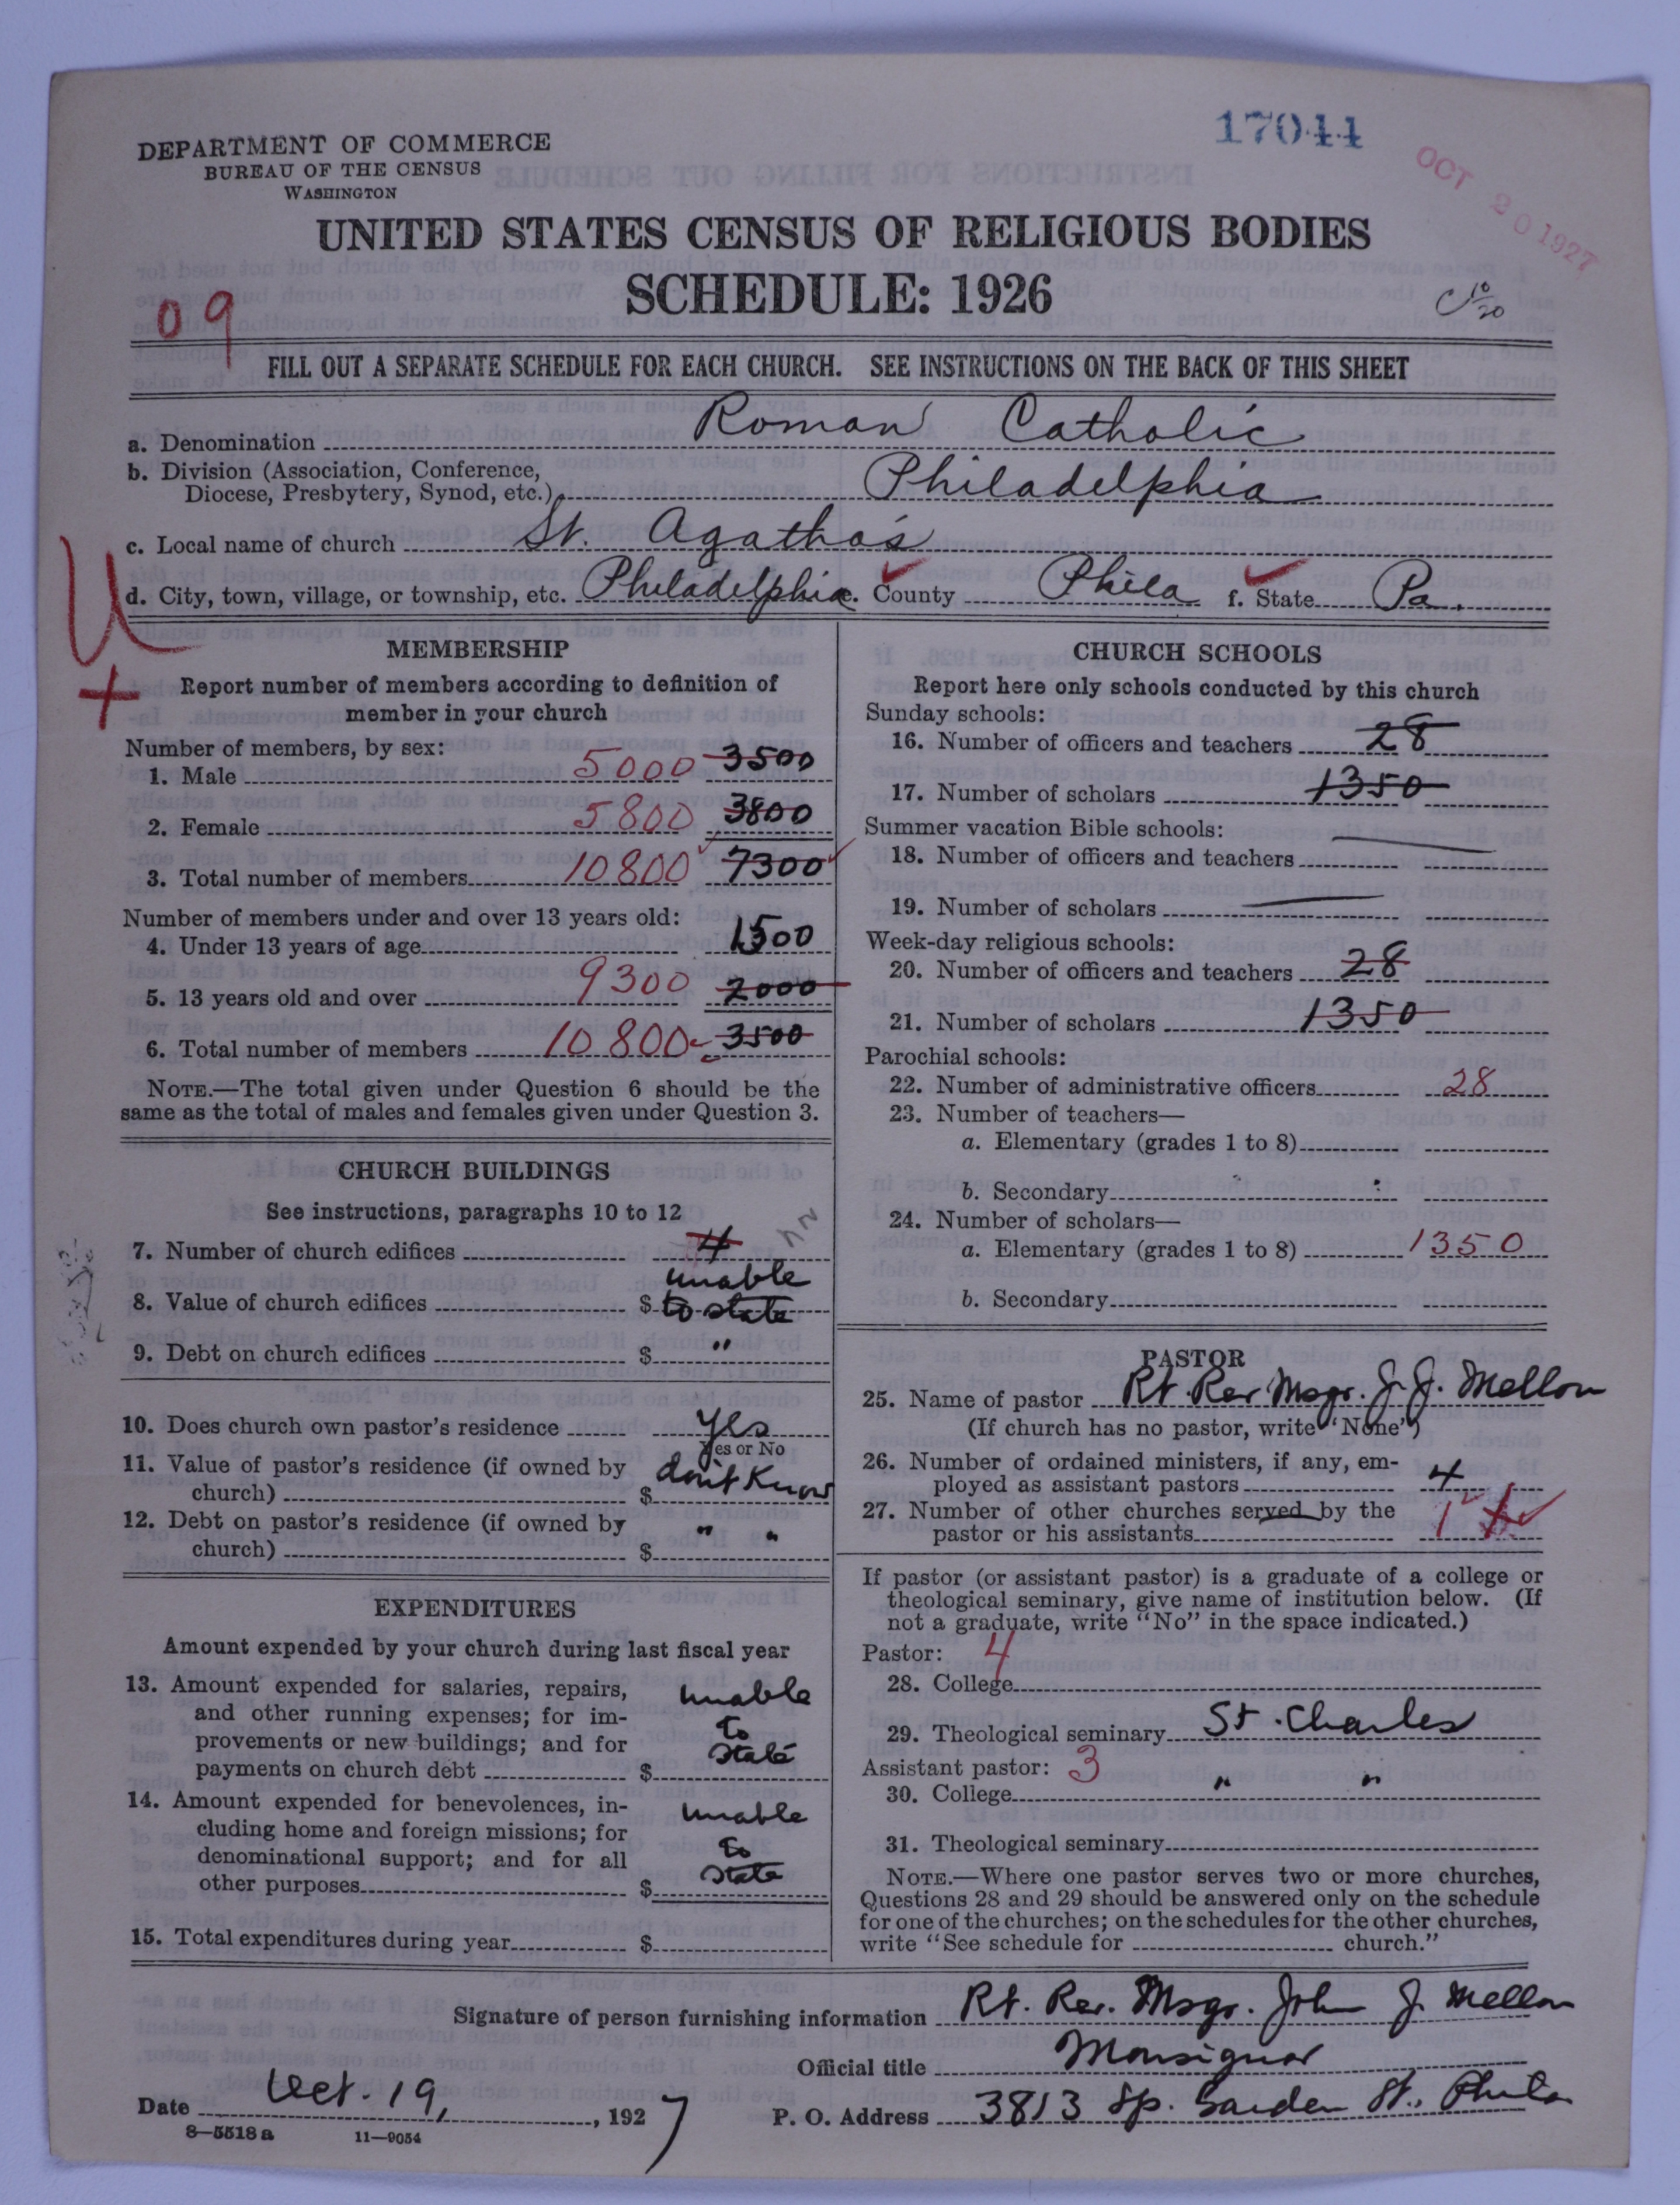 17044
OCT 20 1927
DEPARTMENT OF COMMERCE
BUREAU OF THE CENSUS
WASHINGTON
UNITED STATES CENSUS OF RELIGIOUS BODIES
SCHEDULE: 1926
C 10/20
09
FILL OUT A SEPARATE SCHEDULE FOR EACH CHURCH. SEE INSTRUCTIONS ON THE BACK OF THIS SHEET
a. Denomination Roman Catholic
b. Division (Association, Conference,
Diocese, Presbytery, Synod, etc.) Philadelphia
c. Local name of church St. Agatha's
d. City, town, village, or township, etc. Philadelphia e. County Phila f. State Pa.
U
+
MEMBERSHIP
Report number of members according to definition of
member in your church
Number of members, by sex:
1. Male 5000 3500
2. Female 5800 3800
3. Total number of members 10800 7300
Number of members under and over 13 years old:
4. Under 13 years of age 1500
5. 13 years old and over 9300 2000
6. Total number of members 10800 3500
NOTE.—The total given under Question 6 should be the
same as the total of males and females given under Question 3.
CHURCH BUILDINGS
See instructions, paragraphs 10 to 12
7. Number of church edifices
8. Value of church edifices $ unable
to state
9. Debt on church edifices $ "
10. Does church own pastor's residence yes
Yes or No
11. Value of pastor's residence (if owned by
church) $ don't Know
12. Debt on pastor's residence (if owned by
church) $ " "
EXPENDITURES
Amount expended by your church during last fiscal year
13. Amount expended for salaries, repairs,
and other running expenses; for im-
provements or new buildings; and for
payments on church debt $ unable
to
state
14. Amount expended for benevolences, in-
cluding home and foreign missions; for
denominational support; and for all
other purposes $ unable
to
state
15. Total expenditures during year $
CHURCH SCHOOLS
Report here only schools conducted by this church
Sunday schools:
16. Number of officers and teachers 28
17. Number of scholars 1350
Summer vacation Bible schools:
18. Number of officers and teachers
19. Number of scholars
Week-day religious schools:
20. Number of officers and teachers 28
21. Number of scholars 1350
Parochial schools:
22. Number of administrative officers 28
23. Number of teachers—
a. Elementary (grades 1 to 8)
b. Secondary
24. Number of scholars—
a. Elementary (grades 1 to 8) 1350
b. Secondary
PASTOR
25. Name of pastor Rt. Rev Msgr. J. J. Mellon
(If church has no pastor, write "None")
26. Number of ordained ministers, if any, em-
ployed as assistant pastors 4
27. Number of other churches served by the
pastor or his assistants 1
If pastor (or assistant pastor) is a graduate of a college or
theological seminary, give name of institution below. (If
not a graduate, write "No" in the space indicated.)
Pastor: 4
28. College
29. Theological seminary St. Charles
Assistant pastor: 3
30. College " "
31. Theological seminary
NOTE.—Where one pastor serves two or more churches,
Questions 28 and 29 should be answered only on the schedule
for one of the churches; on the schedules for the other churches,
write "See schedule for church."
Signature of person furnishing information Rt. Rev. Msgr. John J. Mellon
Official title Monsignor
Date Oct. 19, 1927 P. O. Address 3813 Sp. Garden St., Phila
8—5518a 11—9054